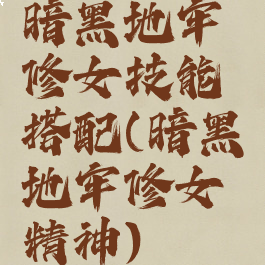 暗黑地牢
修女技能
搭配(暗黑
地牢修女
精神)